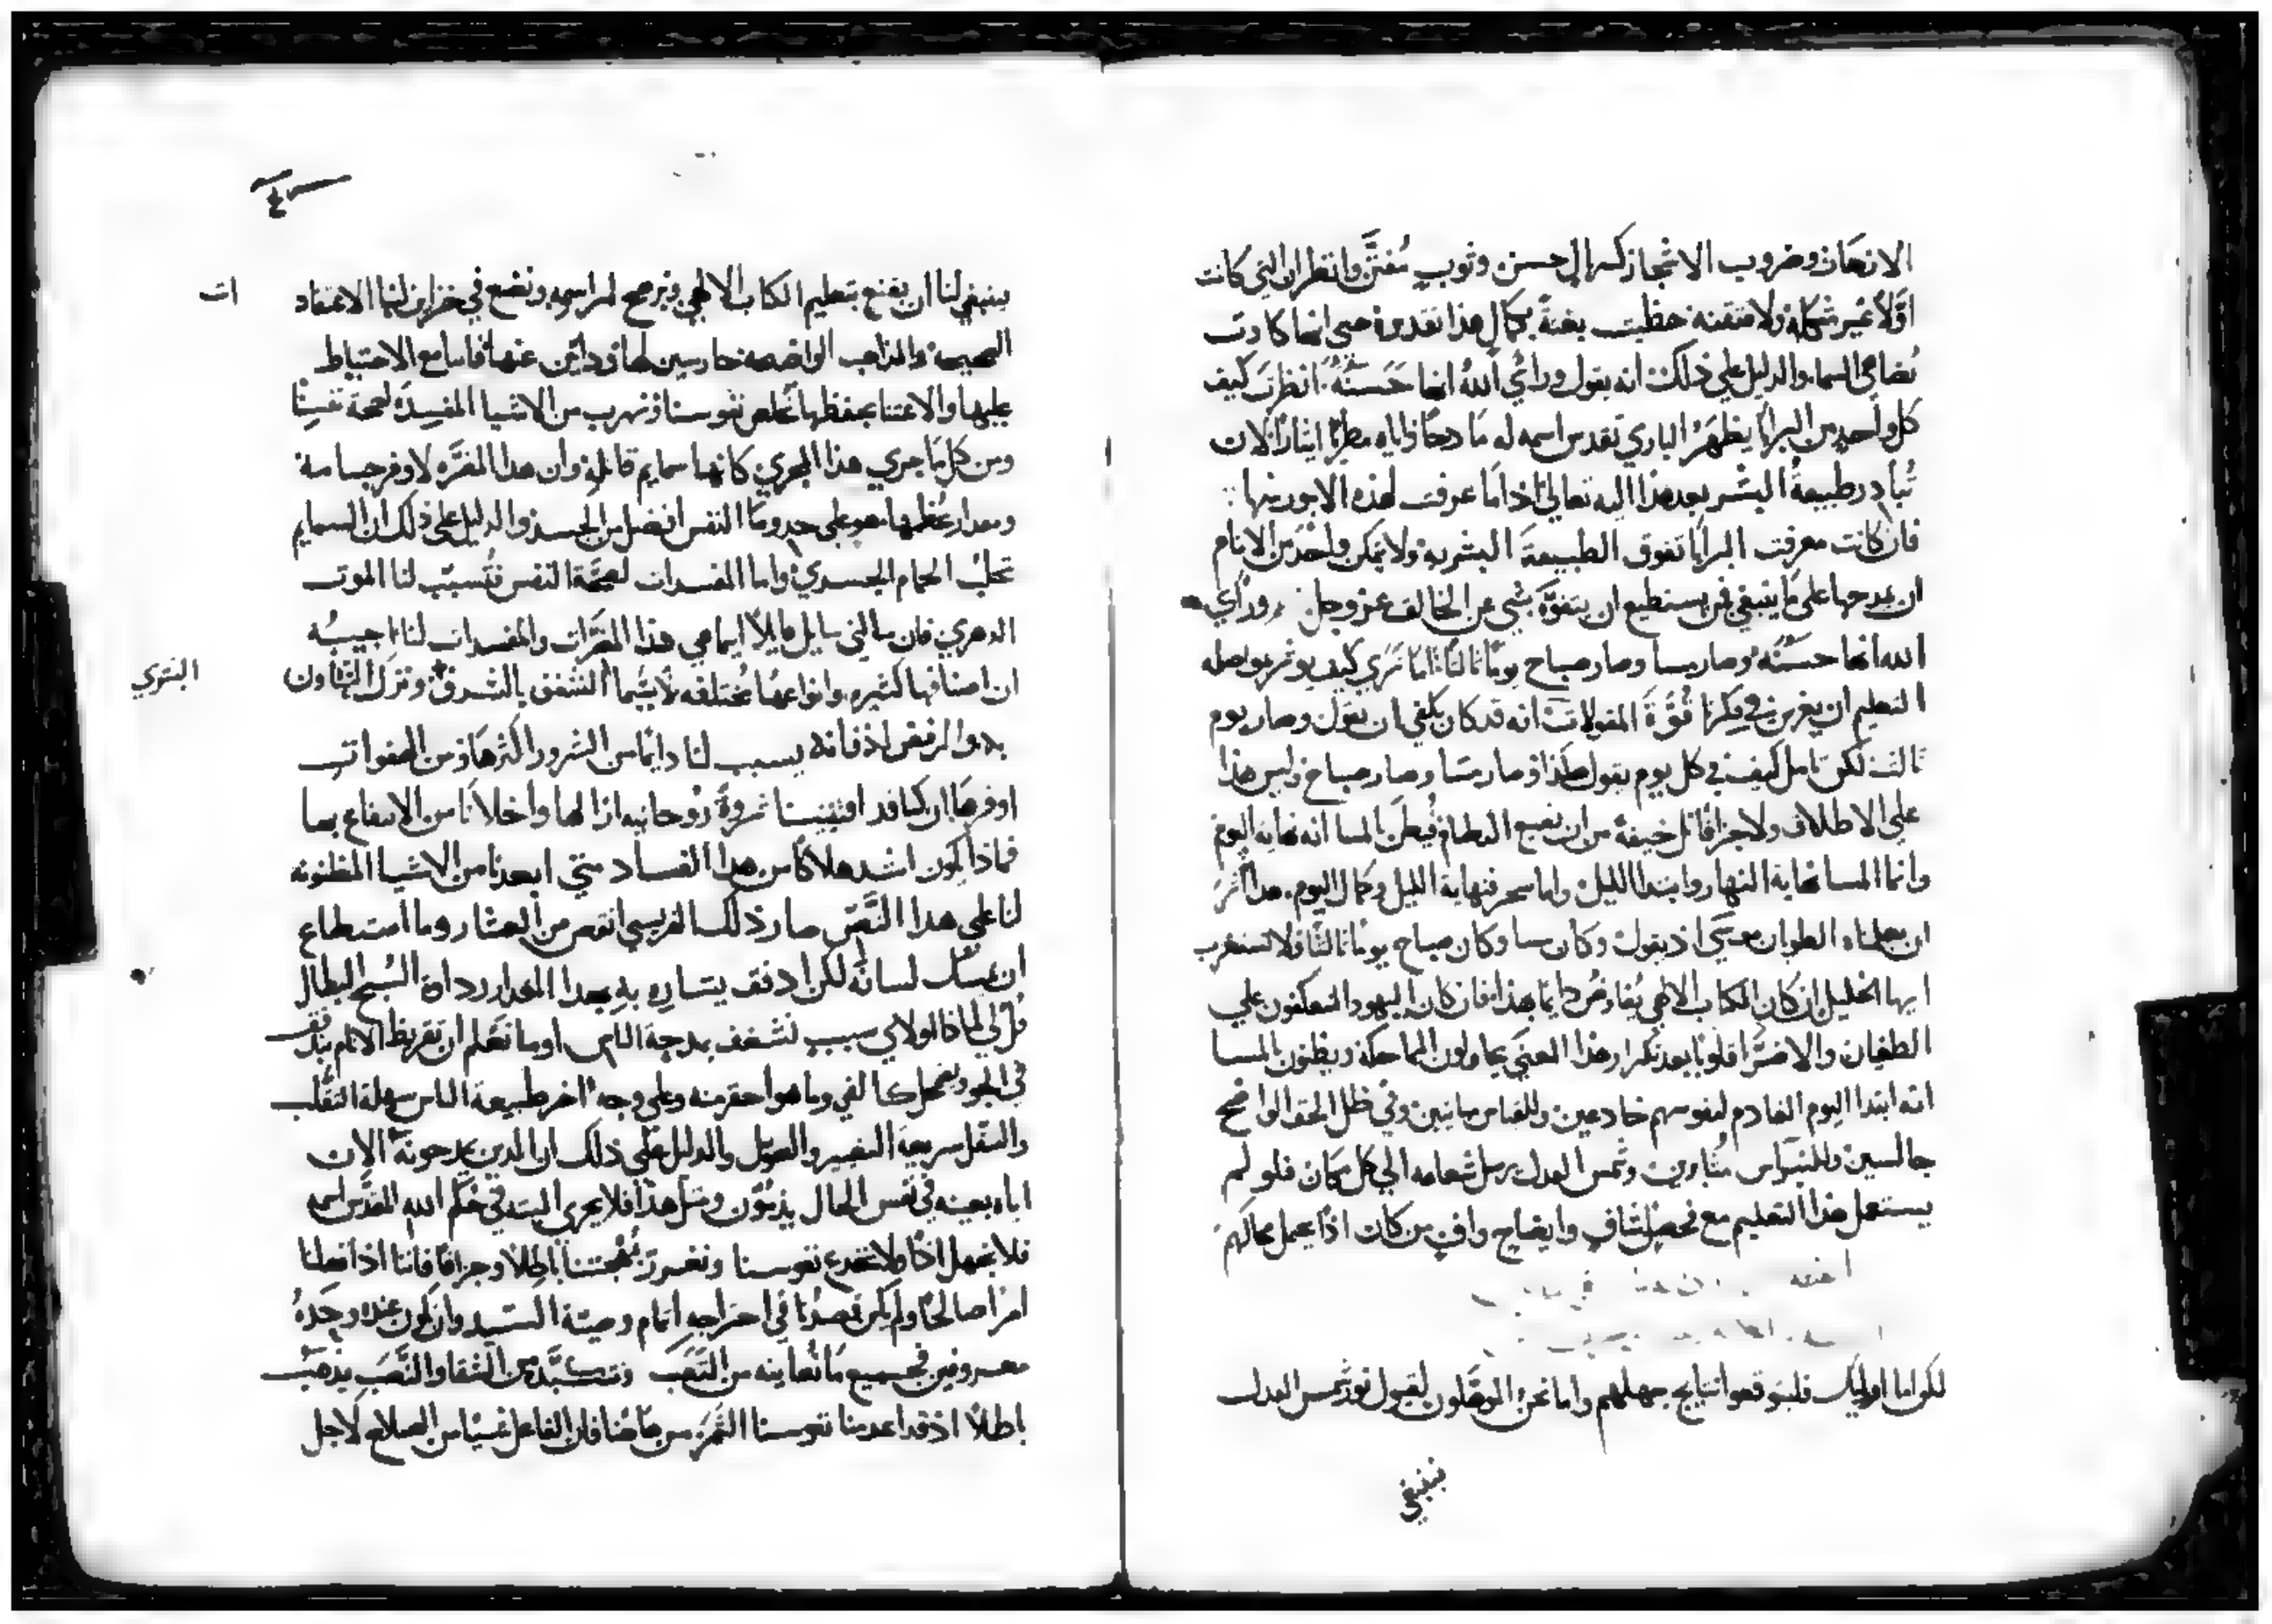 الازهار وضروب الاشجار كسربال حسن وثوب مفتن وانظر ان التي كانت
اولاً غير شكله ولا متقنه حظيت بغتةً بجمال هذا تقديره حتى انها كادت
تضاهي السما. والدليل علي ذلك انه يقول وراي الله انها حَسَنَةً. انظرت كيف
كل واحد من البرايا يظهر الباري تقدس اسمه له مادحاً واياه مطرياً ايثاراً لان
تُبادر طبيعة البشر بعد هذا اليه تعالي اذا ما عرفت لهذه الامور بها
فان كانت معرفت البرايا تفوق الطبيعة البشريه ولا يمكن واحد من الانام
ان يمدحها علي ما ينبغي فمن يستطيع ان يتفوَّه بشي عن الخالق عز وجل وراي
الله انها حسنَه وصار مسا وصار صباح يوماً ثالثاً اما تري كيف يوثر بمواصله
التعليم ان يغرس في فكرنا قُوَّةَ المقولات انه قد كان يكفي ان يقول وصار يوم
ثالث لكن تامل كيف في كل يوم يقول هكذا وصار مسا وصار صباح وليس هذا
علي الاطلاق ولا جزافاً بل خيفةً من ان نضيع النظام ونظن بالمسا انه نهاية اليوم
وانما المسا نهاية النهار وابتدا الليل واما سحر فنهاية الليل وكمال اليوم. هذا اثرَ
ان يعلمناه الطوبان موسي اذ يقول وكان مسا وكان صباح يوماً ثالثاً ولا تستغرب
ايها الخليل ان كان الكتاب الالهي يُفاوض دايماً بهذا فان كان اليهود المنعكفون علي
الطغيان والاضرا قلوباً بعد تكرار هذا المعني يحاولون المماحكة ويظنون بالمسا
انه ابتدا اليوم القادم لنفوسهم خادعين وللقياس مباينين وفي ظل الحق الواضح
جالسين وللنبراس مثابرين وشمس العدل يرسل شعاعه الي كل مكان فلو لم
يستعمل هذا التعليم مع فحصٍ شافٍ وايضاحٍ وافٍ من كان اذاً يحمل محالهم
لكن اما اوليك فليتوقعوا نتايج جهلهم واما نحن الموهلون لقبول نور شمس العدل
ينبغي
ينبغي لنا ان نقنع بتعليم الكتاب الالهي ونرضخ لمراسمه ونضع في خزاين لبنا الاعتقاد
ات
الصحيحة والمذاهب الواضحه حارسين لها وذابين عنها فاننا مع الاحتياط
عليها والاعتنا بحفظها نخلص نفوسنا ونهرب من الاشيا المفسِدَة لصحة نفسِنا
ومن كل ما جري هذا المجري كانها سمايم قاتلة وان هذا المضَرَّه لاوفر جسامة
ومقدار عُظمها هو علي حدو ما النفس افضل من الجسد والدليل علي ذلك ان السمايم
تجلبُ الحمام الجسدي واما المفسدات لصحَّة النفس فتُسبّب لنا الموت
الدهري فان سالني سايل قايلاً ايما هي هذا المضرَّات والمفسدات لنا اجيبُه
ان اصنافها كثيره وانواعها مُختلفه لا سيَّما الشغف بالشرف وترك التهاون
البتري
به والرفض اذ فانه يسبب لنا دايماً من الشرور اكثرها ومن الهفوات
اوفرها ان كنا قد اقتنينا ثروةً رُوحانيه ازالها واخلانا من الانتفاع بها
فماذا يكون اشد هلاكاً من هذا الفساد متي ابعدنا من الاشيا المظنونه
لنا علي هذا النَّص صار ذلك الفريسي انقص من العشار وما استطاع
ان يمسك لسانه لكن اذ فقد يساره به بهذا المقدار رداة السُبح البطال
قل لي لماذا او لاي سبب نشغف بمدحة الناس اوما نعَلم ان تقريظ الانام يتدفق
في الجو ويضمحل كالفي وما هو احقر منه وعلي وجه اخر طبيعة الناس سهلة التقَلب
والنقل سريعة التغيير والتحوّل والدليل علي ذلك ان الذين يمدحونه الان
اياه بعينه في نفس الحال يذمّون ومثل هذا فلا يجري البتة في حُكم الله المقدَّس اسمه
فلا نجهل اذاً ولا نخدع نفوسنا ونغرر مُهجتنا باطلاً وجزافاً فاننا اذا فعلنا
امراً صالحاً ولم يكن قصدنا في اخراجه اتمام وصية السيد وان نكون عنده وحدهُ
معروفين فجميع ما نعاينه من التَّعَب ونتكبَّده من الشقا والنَّصَب يذهَب
باطلاً اذ قد اعدمنا نفوسنا الثمرة من هاهنا فان الفاعل شيئاً من الصلاح لاجل